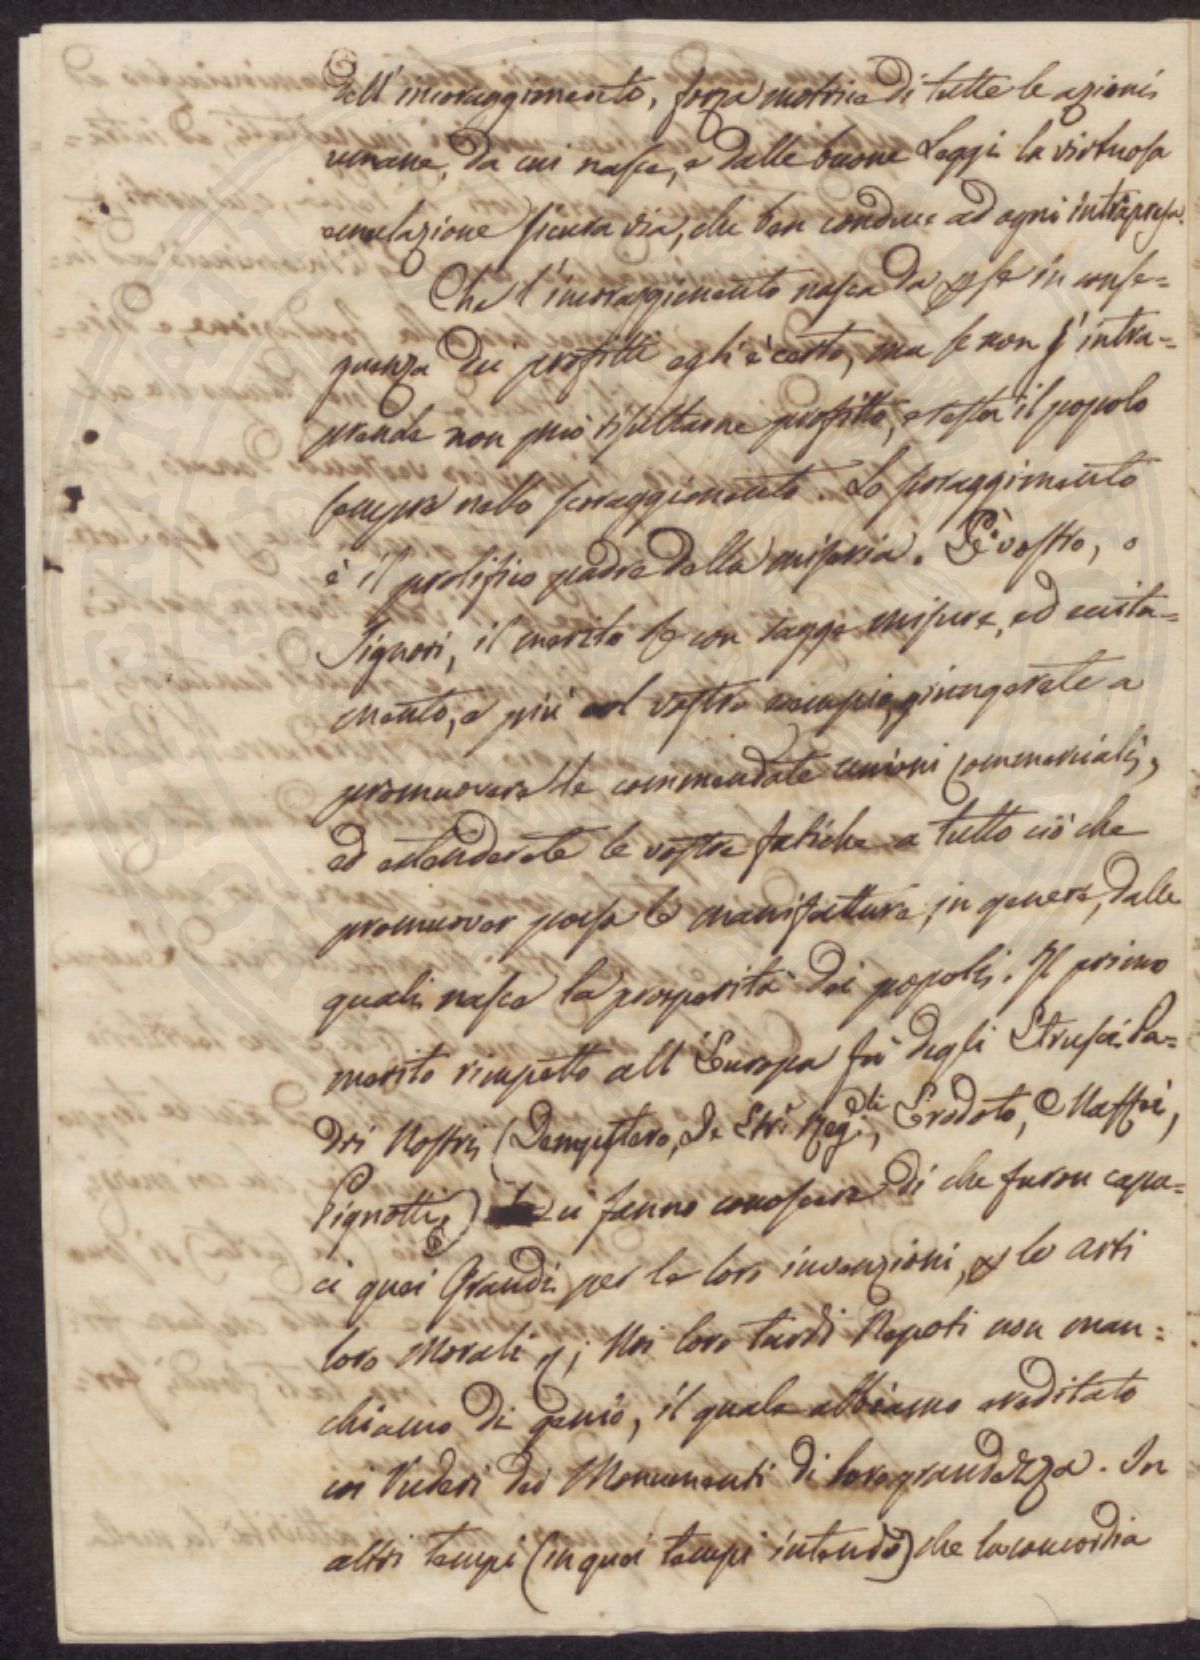 dell'incoraggimento, forza motrice di tutte le azioni
umane, da cui nasce, e dalle buone Leggi la virtuosa
emulazione sicura via, che ben conduce ad ogni intrapresa.
Che l'incoraggimento nasca da se in conse=
guenza dei profitti egli è certo, ma se non s'intra=
prende non può risultarne profitto, e resta il popolo
sempre nello scoraggimento. Lo scoraggimento
è il prolifico padre della miseria. È vostro, o
Signori, il merito se con sagge misure, ed eccita=
mento, e più col vostro esempio, giungerete a
promuovere le commendate unioni commerciali,
ed estenderete le vostre fatiche a tutto ciò che
promuover possa le manifatture in genere, dalle
quali nasce la prosperità dei popoli. Il primo
merito rimpetto all'Europa fu degli Etrusci Pa=
dri Nostri (Dempstero, De Etrᵃ Regˡⁱ, Erodoto, Maffei,
Pignotti) ci fanno conoscere di che furon capa=
ci quei Grandi per le loro invenzioni, le arti
loro Morali; Noi loro tardi Nepoti non man=
chiamo di genio, il quale abbiamo ereditato
coi Ruderi dei Monumenti di loro grandezza. In
altri tempi (in quei tempi intendo) che la concordia